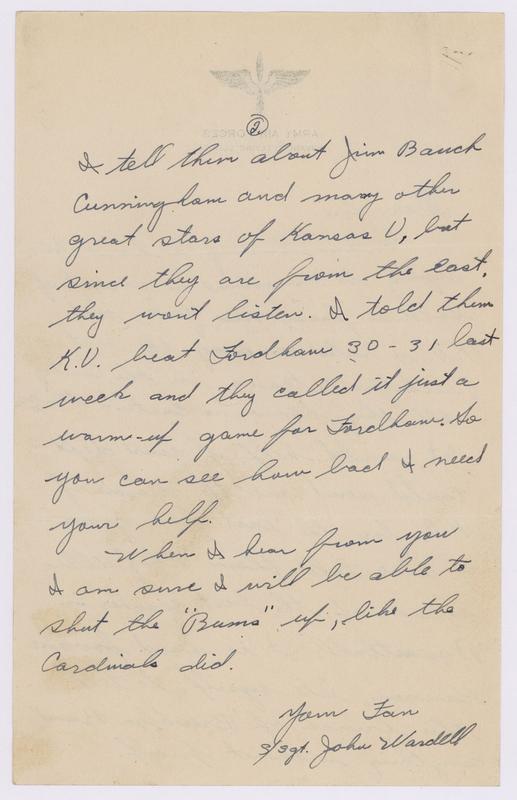 ②
I tell them about Jim Bauch
Cunningham and many other
great stars of Kansas U, but
since they are from the east,
they won't listen. I told them
K.U. beat Fordham 30-31 last
week and they called it just a
warm-up game for Fordham. So
you can see how bad I need
your help.
When I hear from you
I am sure I will be able to
shut the "Bums" up, like the
Cardinals did.
Your Fan
S/Sgt. John Wardell